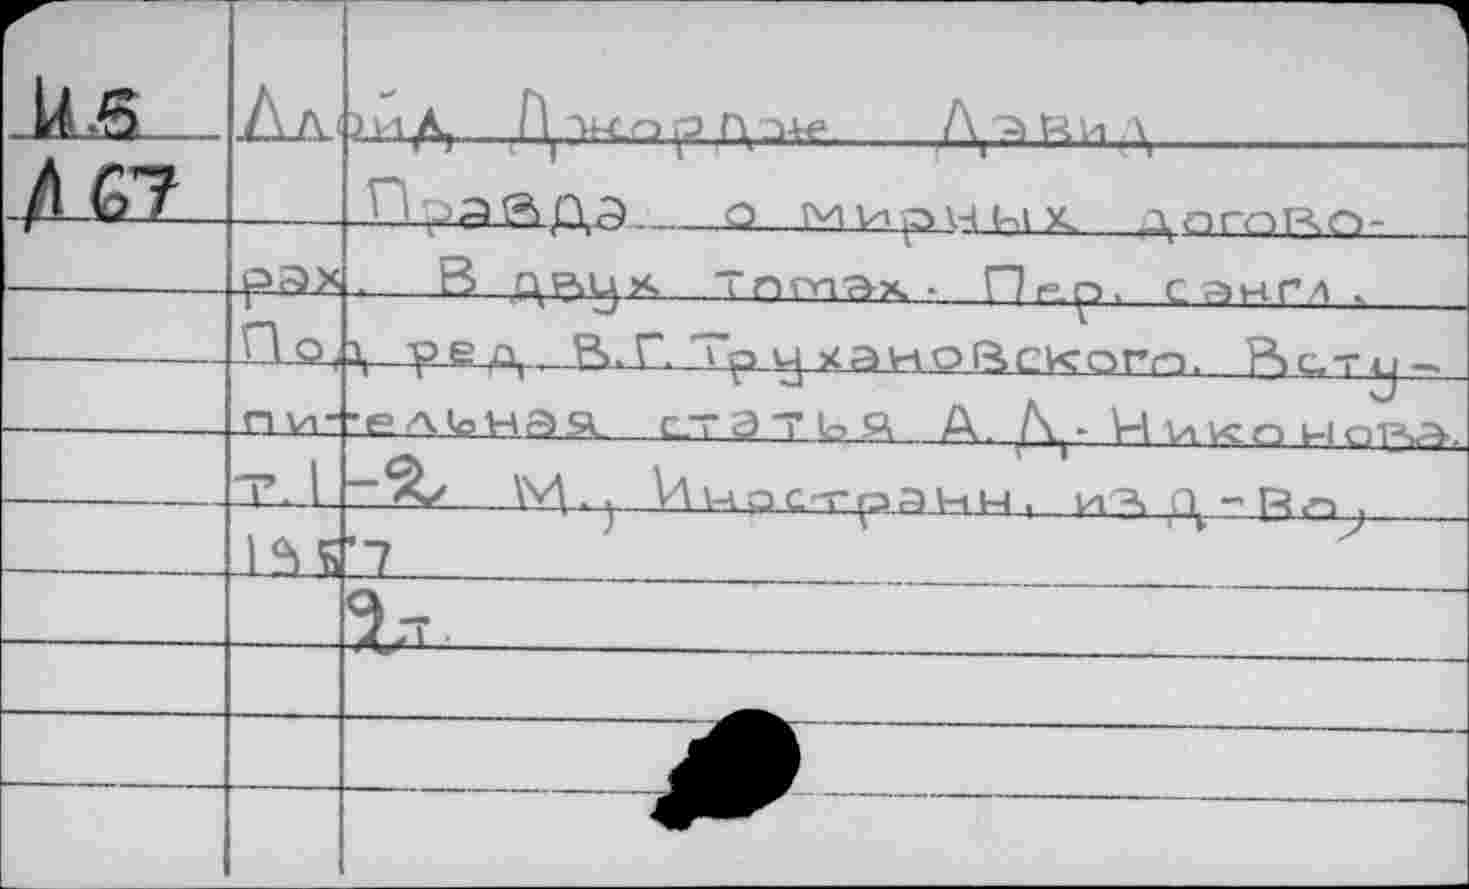 И5 Ллойд Джордж Дэвид
Л67 Правда о мирных догово-
рах. В двух томах. Пер. с англ.
Под ред. В.Г. Трухановского. Всту-
пительная статья А.Д. Никонова.
т.1-2, М., Иностранн. изд-во,
1957
2т.